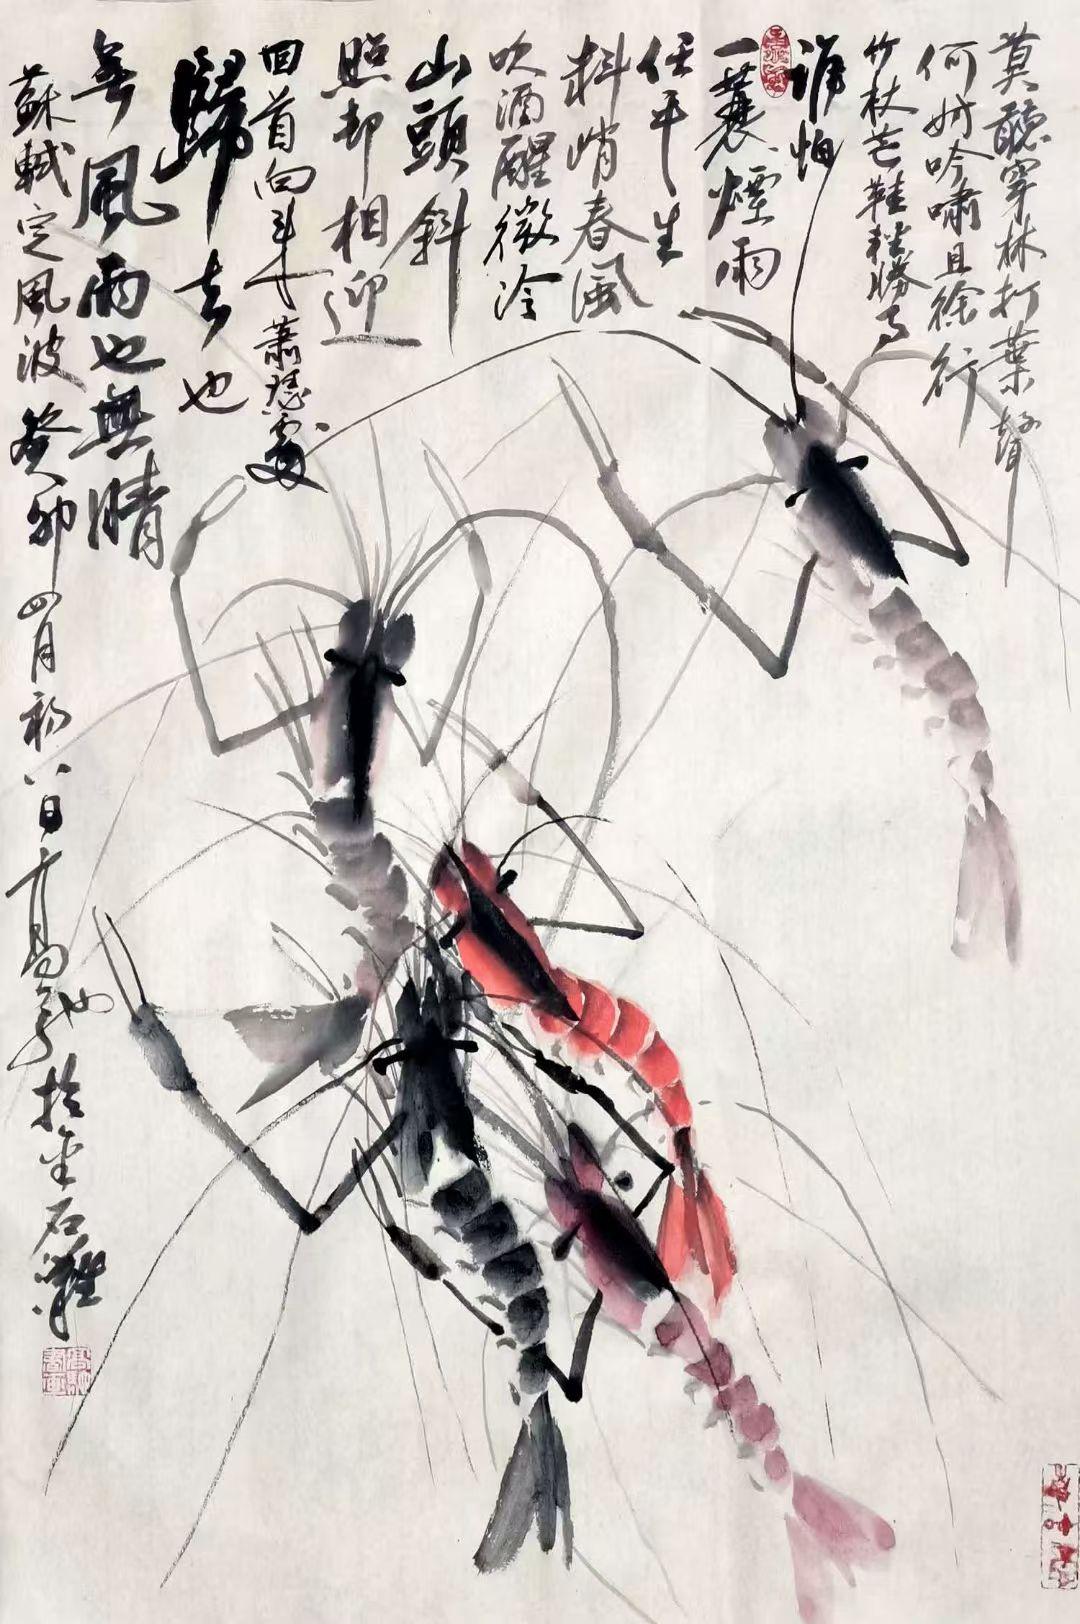 莫聽穿林打葉聲
何妨吟嘯且徐行
竹杖芒鞋輕勝马
誰怕
一蓑煙雨
任平生
料峭春風
吹酒醒微冷
山頭斜
照却相迎
回首向来蕭瑟處
歸去也
無風雨也無晴
蘇軾定風波癸卯四月初八日高於石灘